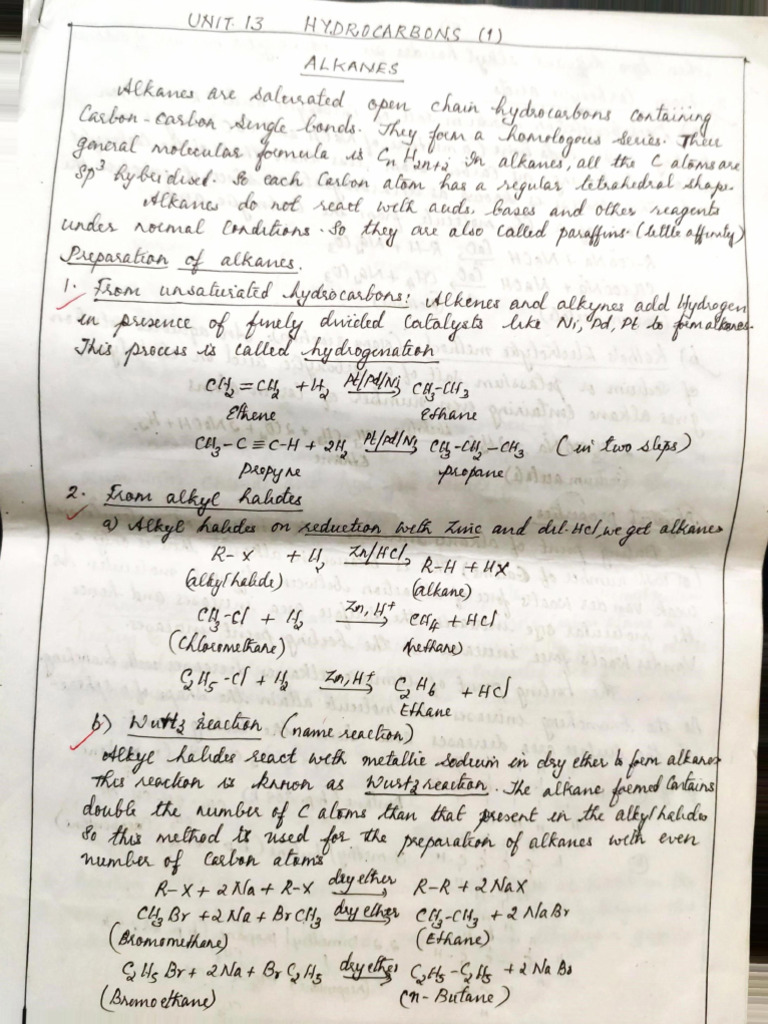 UNIT. 13 HYDROCARBONS (1)
ALKANES
Alkanes are saturated open chain hydrocarbons containing
Carbon-carbon single bonds. They form a homologous series. Their
general molecular formula is CnH2n+2 In alkanes, all the C atoms are
sp³ hybridised. So each Carbon atom has a regular tetrahedral shape.
Alkanes do not react with acids, bases and other reagents
under normal conditions. So they are also called paraffins. (little affinity)
Preparation of alkanes.
1. From unsaturated hydrocarbons: Alkenes and alkynes add Hydrogen
in presence of finely divided catalysts like Ni, Pd, Pt to form alkanes.
This process is called hydrogenation
CH₂=CH₂ + H₂ Pt/Pd/Ni → CH₃-CH₃
Ethene Ethane
CH₃-C≡C-H + 2H₂ Pt/Pd/Ni → CH₃-CH₂-CH₃ (in two steps)
propyne propane
2. From alkyl halides
a) Alkyl halides on reduction with Zinc and dil. HCl, we get alkanes
R-X + H₂ Zn/HCl → R-H + HX
(alkyl halide) (alkane)
CH₃-Cl + H₂ Zn, H⁺ → CH₄ + HCl
(Chloromethane) (Methane)
C₂H₅-Cl + H₂ Zn, H⁺ → C₂H₆ + HCl
Ethane
b) Wurtz reaction (name reaction)
Alkyl halides react with metallic sodium in dry ether to form alkanes
This reaction is known as Wurtz reaction. The alkane formed contains
double the number of C atoms than that present in the alkyl halides
So this method is used for the preparation of alkanes with even
number of carbon atoms
R-X + 2Na + R-X dry ether → R-R + 2NaX
CH₃Br + 2Na + BrCH₃ dry ether → CH₃-CH₃ + 2NaBr
(Bromomethane) (Ethane)
C₂H₅Br + 2Na + BrC₂H₅ dry ether → C₂H₅-C₂H₅ + 2NaBr
(Bromoethane) (n-Butane)